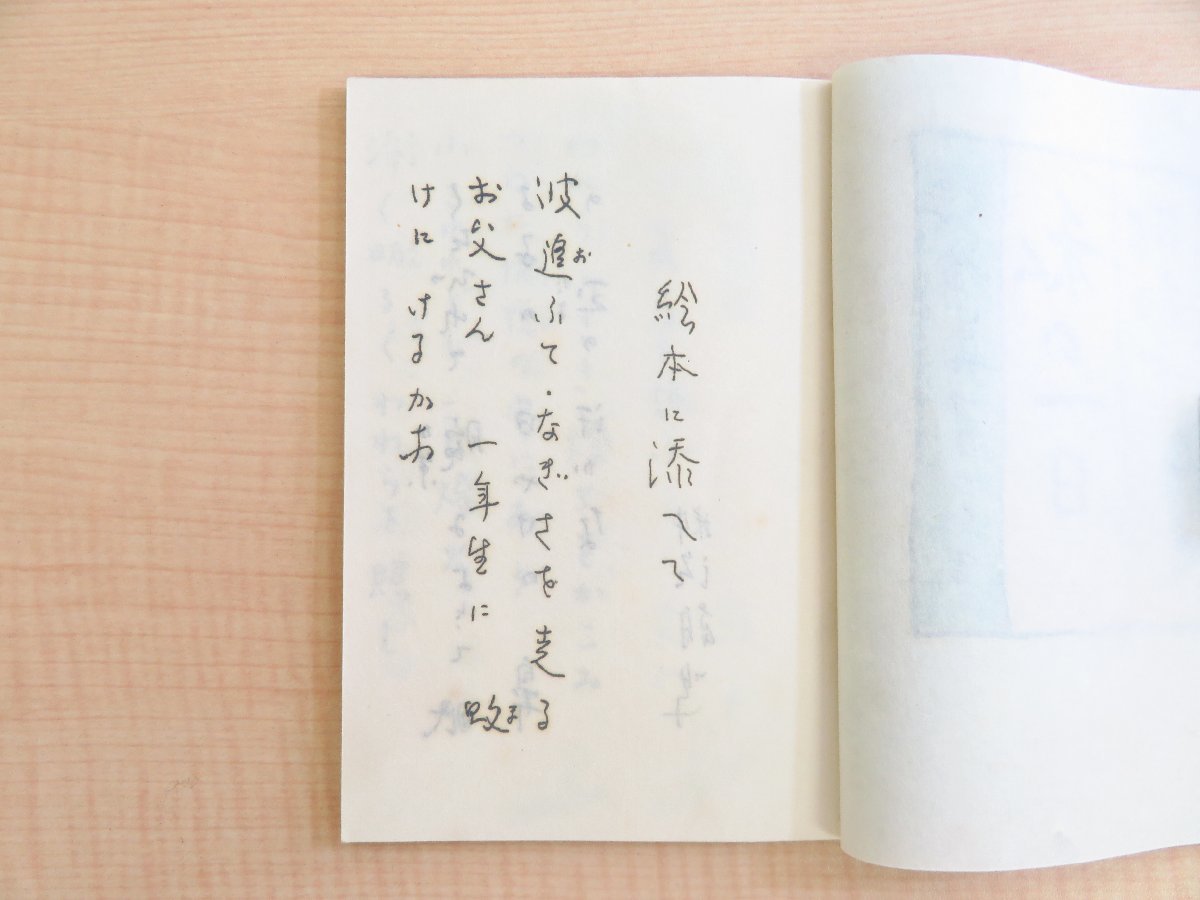 絵本に添へて
波追ふて・なぎさを走る
お
お父さん 一年生に 敗
ま
けに けるかも